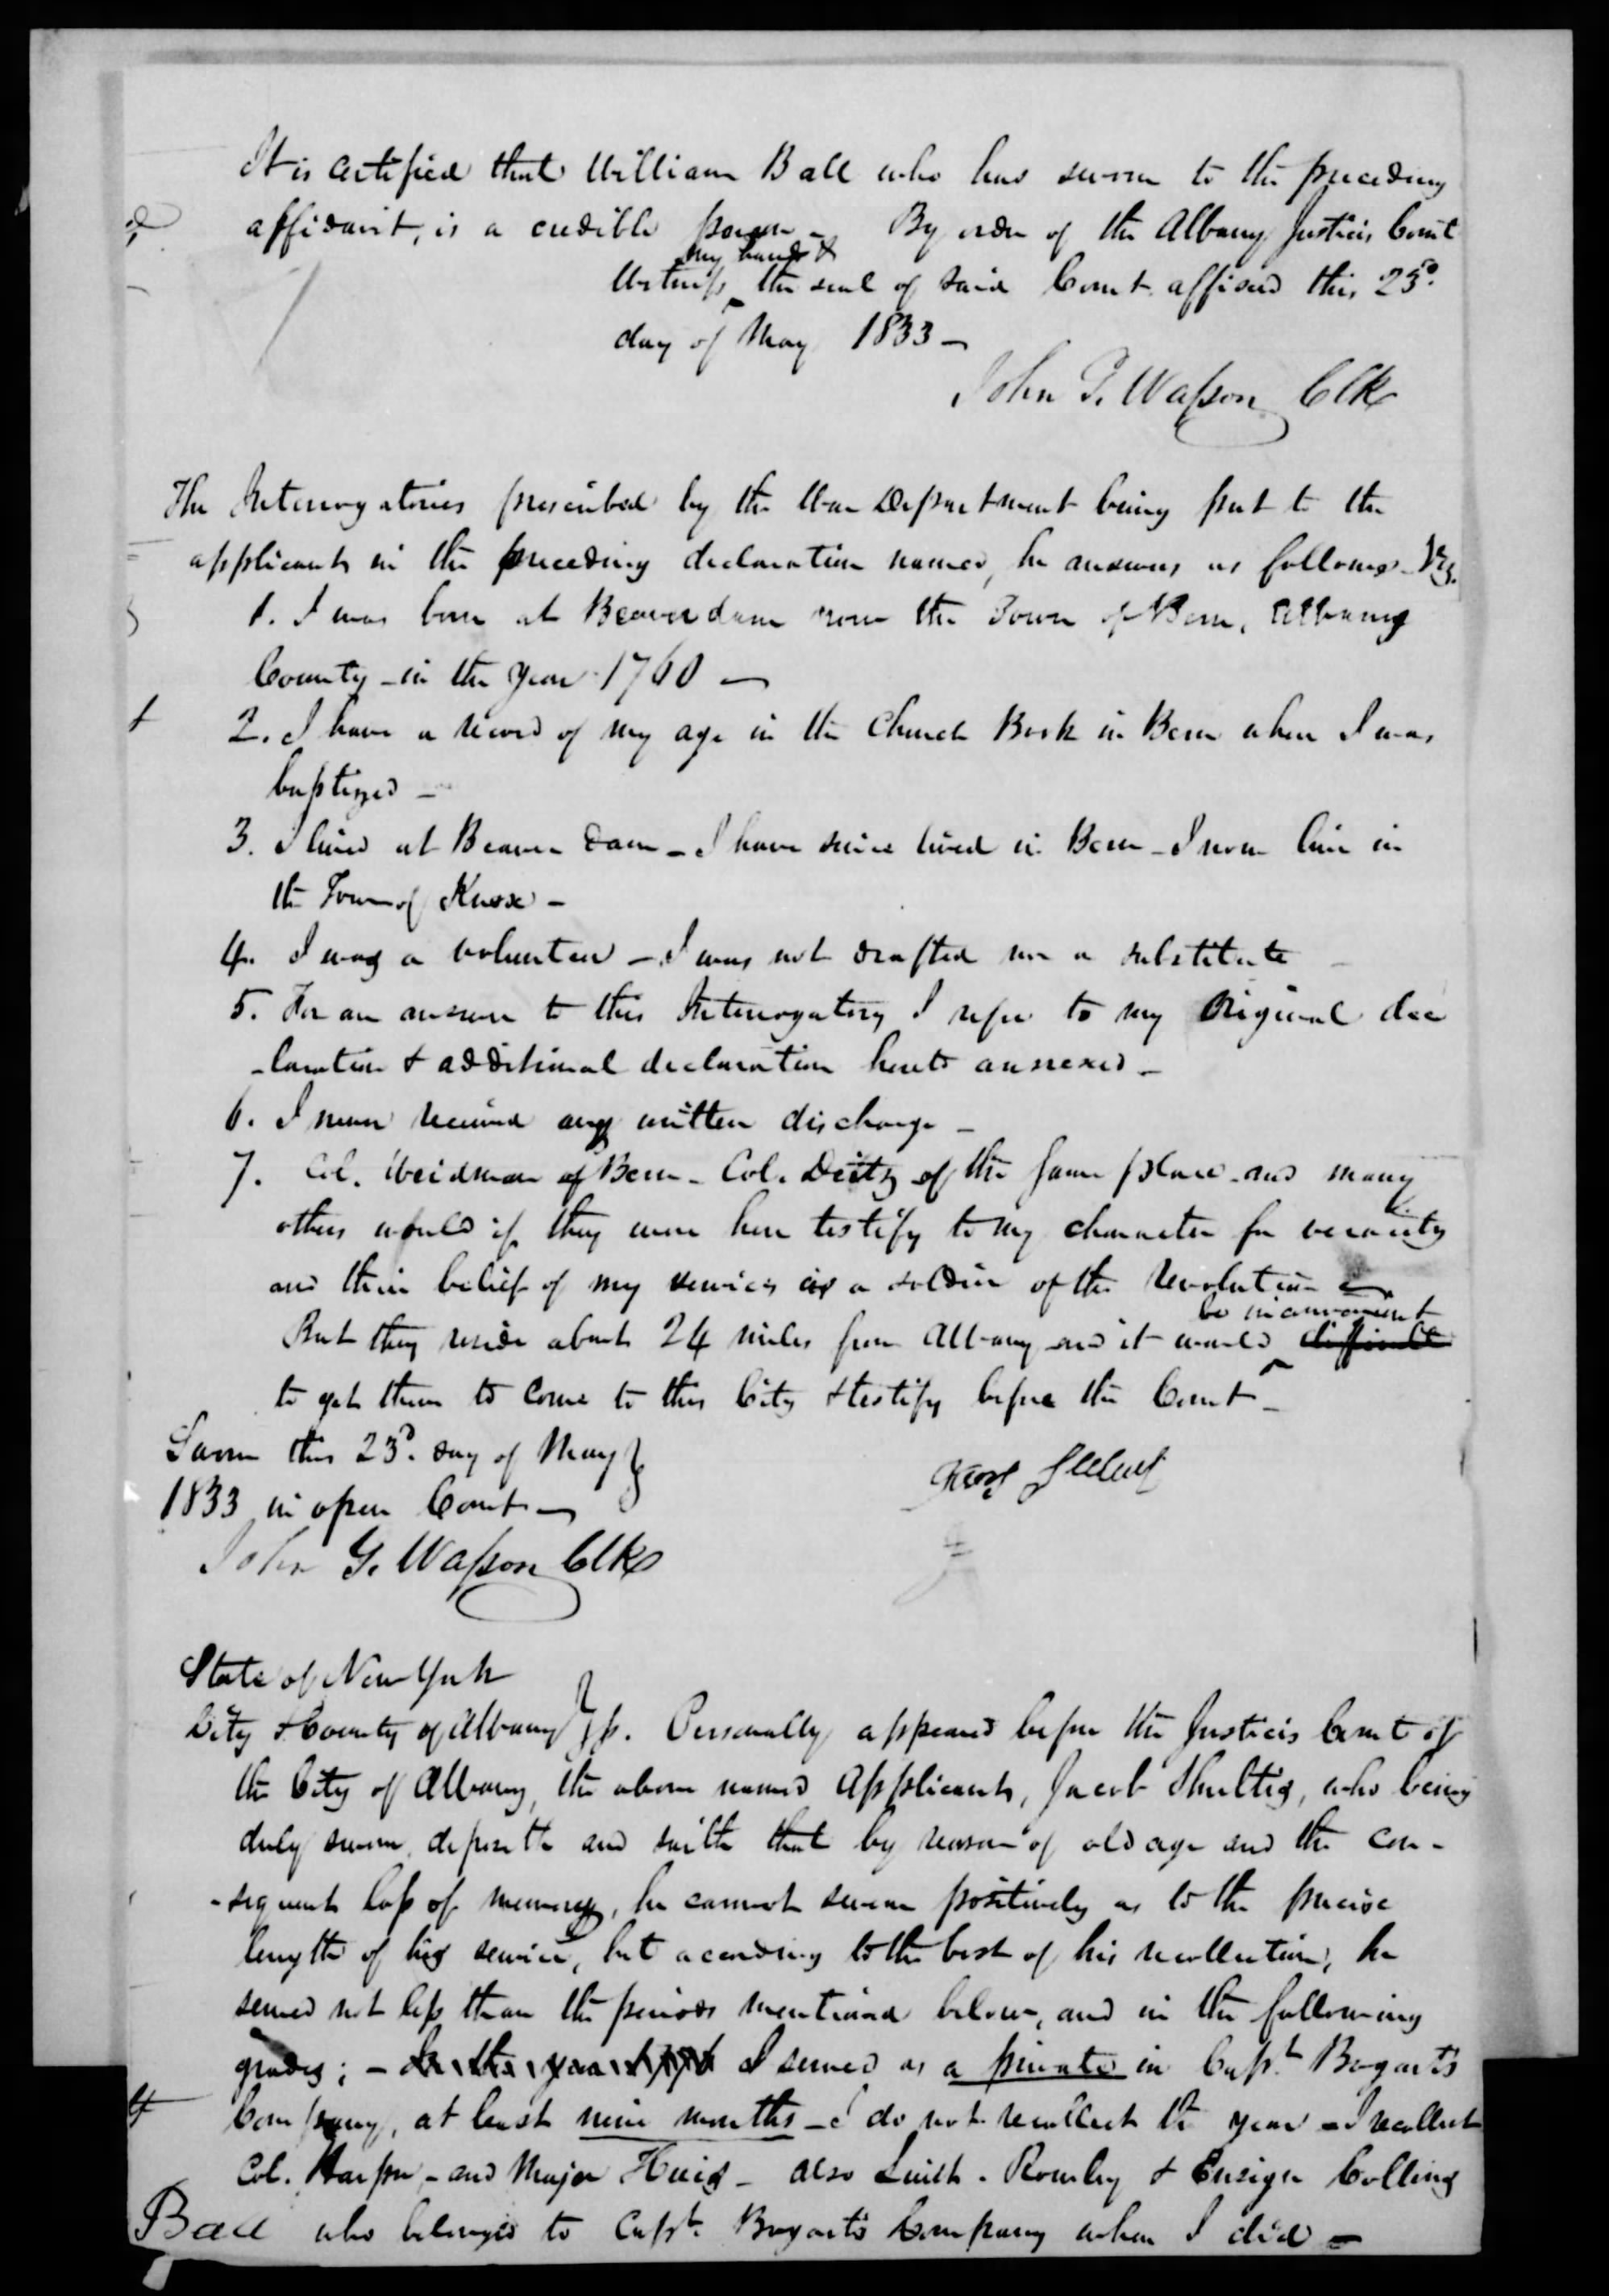 It is certified that William Ball who has sworn to the preceding
affidavit, is a credible person - By order of the Albany Justices Court
my hand &
Witness the seal of said Court affixed this 23d.
day of May 1833 -
John G. Wasson Clk
The Interrogatories prescribed by the War Department being put to the
applicant in the preceding declaration named, he answers as follows - Viz.
1. I was born at Beaverdam now the Town of Bern, Albany
County - in the year 1760 -
2. I have a record of my age in the Church Book in Bern where I was
baptized -
3. I lived at Beaver Dam - I have since lived in Bern - I now live in
the Town of Knox -
4. I was a volunteer - I was not drafted nor a substitute -
5. For an answer to this Interrogatory I refer to my Original dec
-laration & additional declaration hereto annexed -
6. I never received any written discharge -
7. Col. Weidman of Bern - Col. Deitz of the same place - and many
others would if they were here testify to my character for veracity
and their belief of my services as a soldier of the Revolution -
be inconvenient
But they reside about 24 miles from Albany and it would difficult
to get them to come to this City & testify before the Court -
Sworn this 23d. day of May }
1833 in open Court -
John G. Wasson Clk
State of New York
City & County of Albany } ss. Personally appeared before the Justices Court of
the City of Albany, the above named Applicant, Jacob Shultis, who being
duly sworn, deposeth and saith that by reason of old age and the con-
-sequent loss of memory, he cannot swear positively as to the precise
length of his service, but according to the best of his recollection, he
served not less than the periods mentioned below, and in the following
grades; - In the year I served as a private in Capt. Bogarts
Company, at least nine months - I do not recollect the year - I recollect
Col. Harper - and Major Huig - also Lieuth. Rowley & Ensign Colling
Ball who belonged to Capt. Bogarts Company when I did -